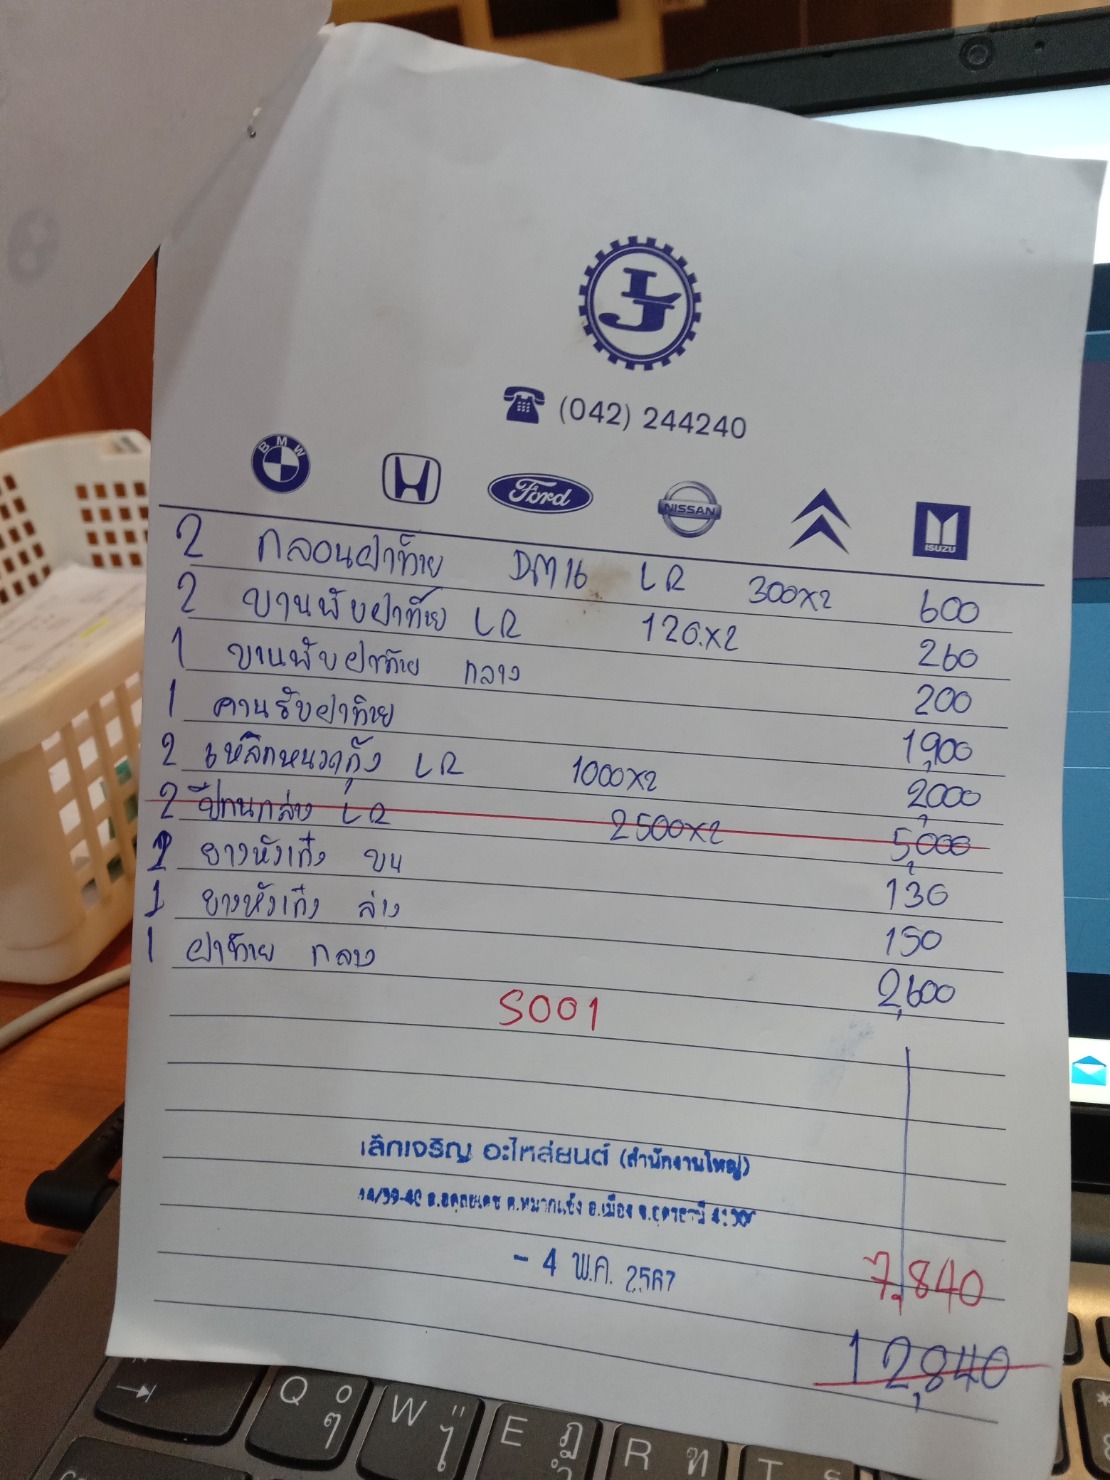 LJ
(042) 244240
BMW
Ford
NISSAN
ISUZU
2 กลอนฝาท้าย DM16 LR 300x2 600
2 บานพับฝาท้าย LR 120.x2 260
1 บานพับฝาท้าย กลาง 200
1 คานรับฝาท้าย 1,900
2 เหล็กหนวดกุ้ง LR 1000x2 2,000
2 LR 2500x2 5,000
1 ยางหัวเก๋ง บน 130
1 ยางหัวเก๋ง ล่าง 150
1 ฝาท้าย กลาง 2,600
S001
เล็กเจริญ อะไหล่ยนต์ (สำนักงานใหญ่)
ต.หมากแข้ง อ.เมือง จ.อุดรธานี
- 4 พ.ค. 2567
7,840
12,840
Q ๐ ๆ
W " ไ
E ฎ ำ
R ฑ
T ธ